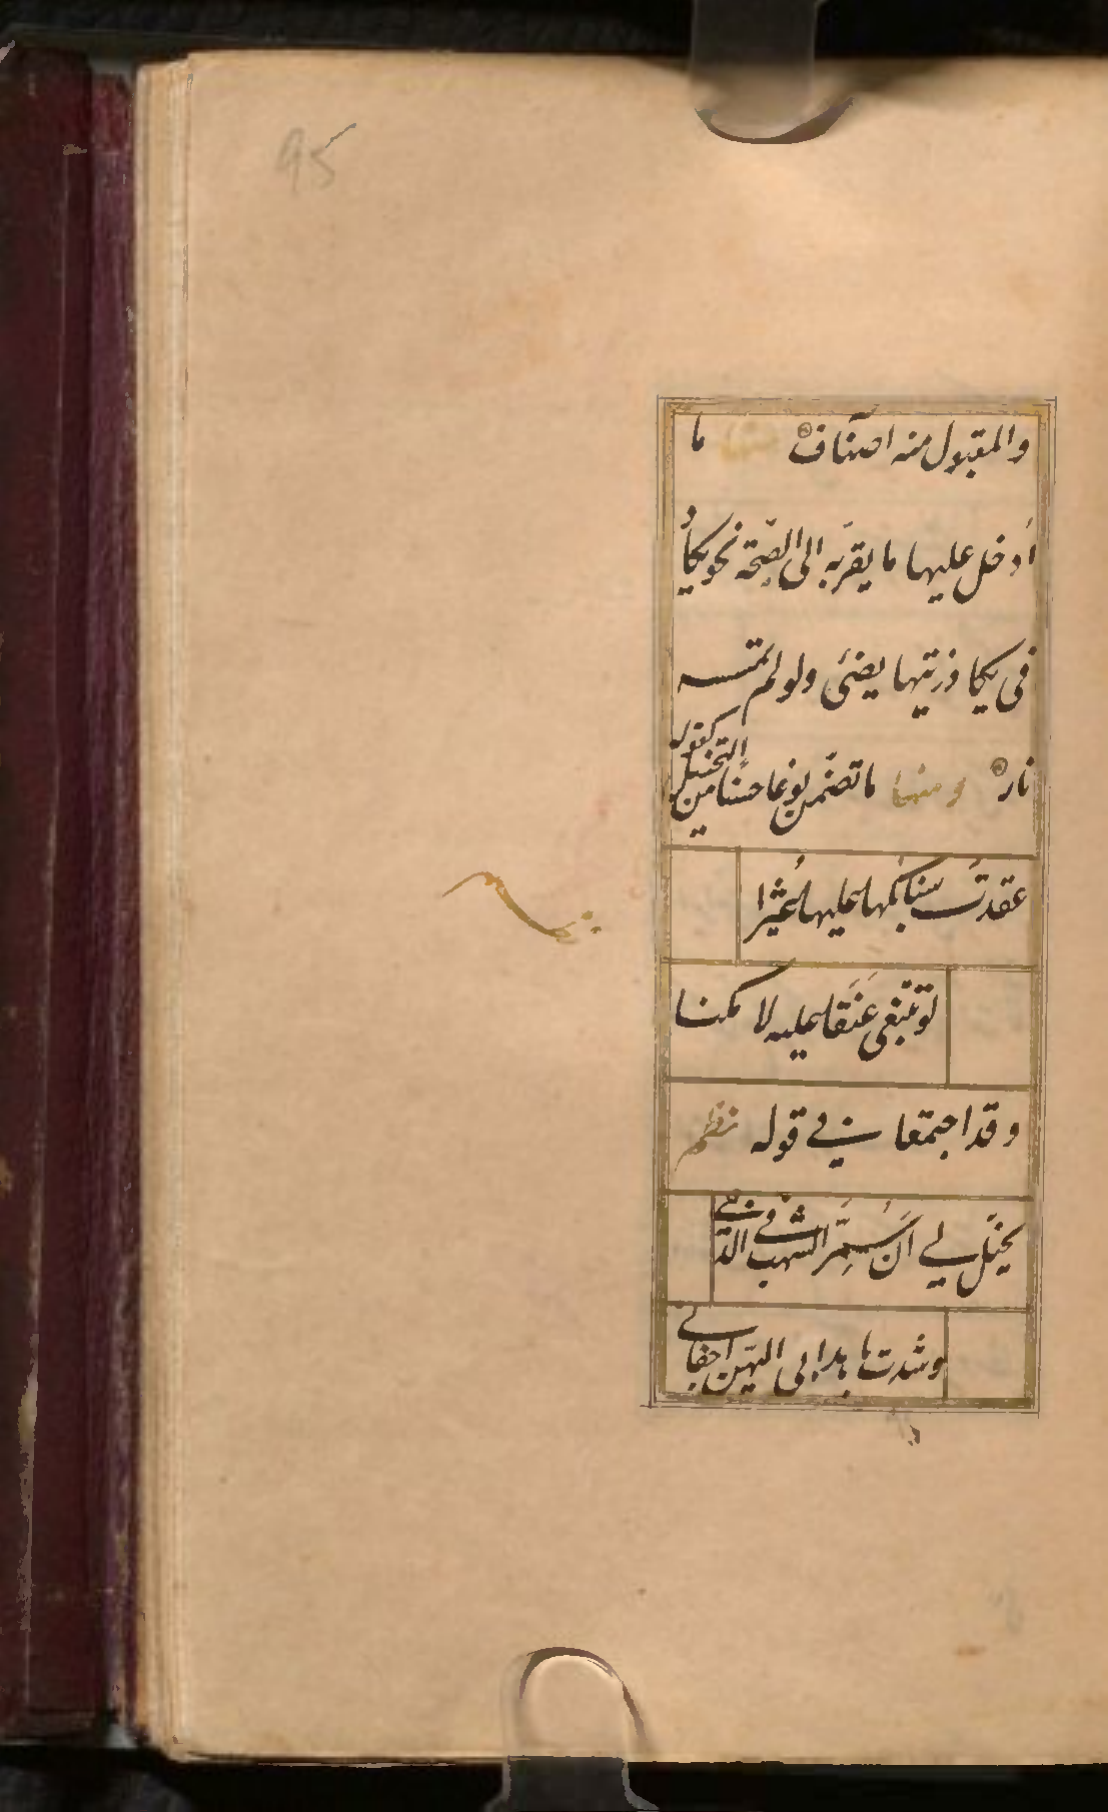 95
والمقبول منه اصناف منها ما
أدخل عليها ما يقربه الى الصّحّة نحو يكادُ
فى يكاد زيتها يضئ ولو لم تمسسه
نار ومنها ما تضمّن نوعا حسنا من التخييل كقوله
نظم
عقدتْ سنابكها عليها عِثْيَرا
لو تبتغى عَنَقا عليه لامكنا
وقد اجتمعا فى قوله نظم
يخيّل لي أنْ سُمِّرَ الشهب فى الدّجى
وشدت باهدابى اليهنّ اجفانى